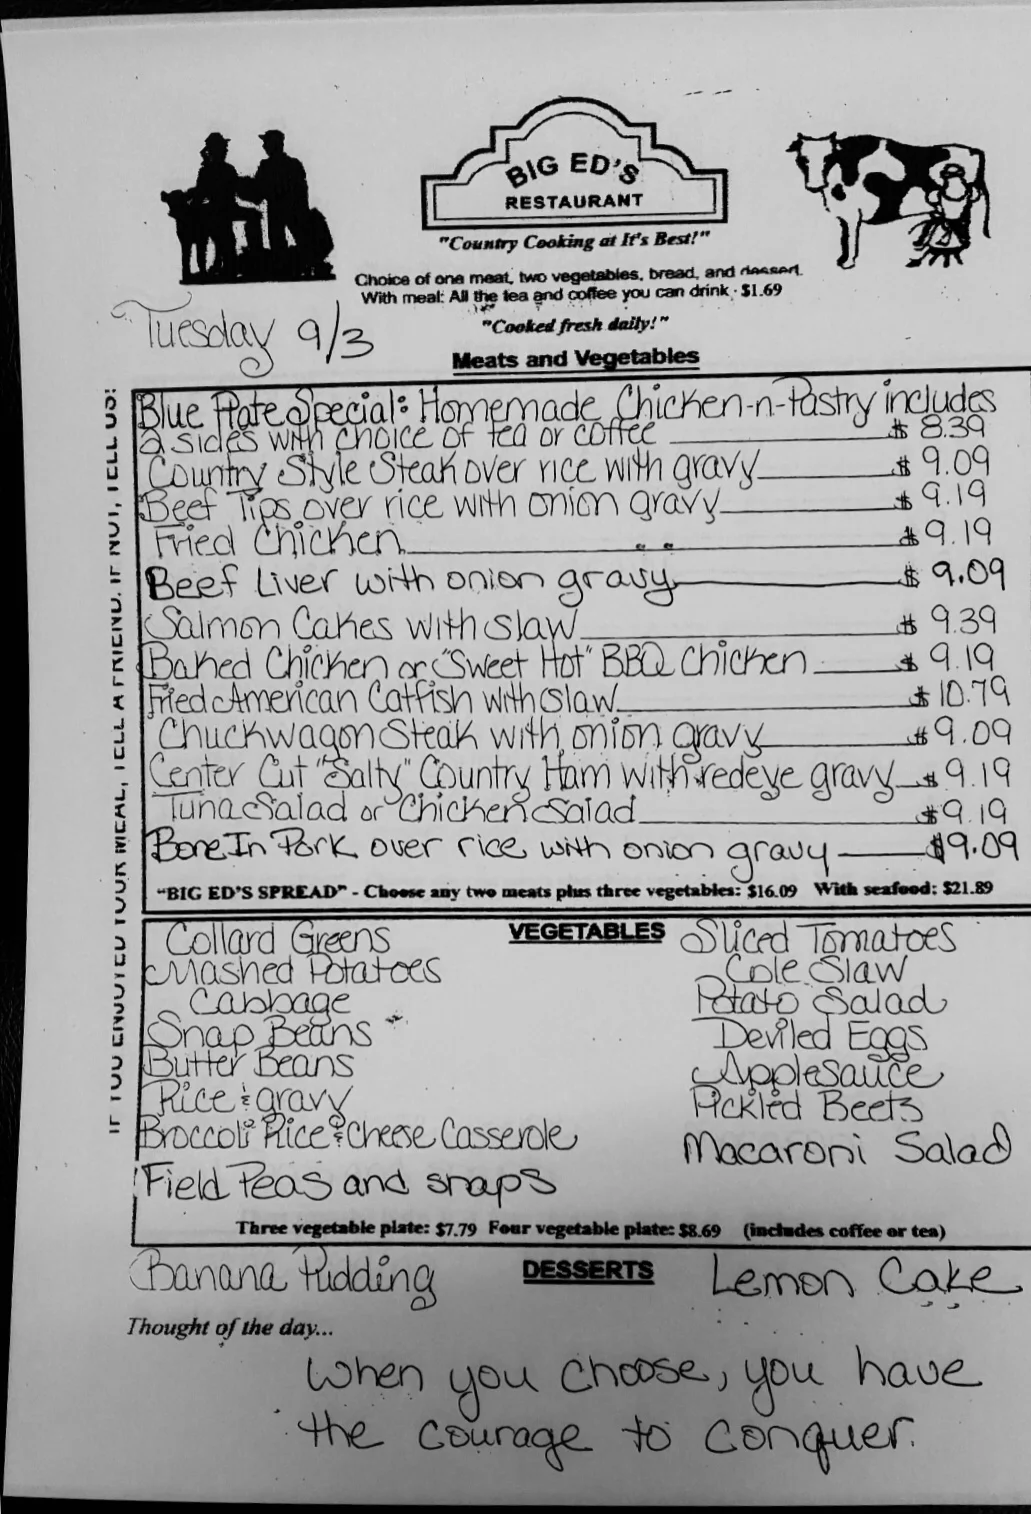 BIG ED'S
RESTAURANT
"Country Cooking at It's Best!"
Choice of one meat, two vegetables, bread, and dessert.
With meal: All the tea and coffee you can drink - $1.69
"Cooked fresh daily!"
Tuesday 9/3
Meats and Vegetables
Blue Plate Special: Homemade Chicken-n-Pastry includes
2 sides with choice of tea or coffee $ 8.39
Country Style Steak over rice with gravy $ 9.09
Beef Tips over rice with onion gravy $ 9.19
Fried Chicken $ 9.19
Beef Liver with onion gravy $ 9.09
Salmon Cakes with slaw $ 9.39
Baked Chicken or "Sweet Hot" BBQ Chicken $ 9.19
Fried American Catfish with slaw $ 10.79
Chuckwagon Steak with onion gravy $ 9.09
Center Cut "Salty" Country Ham with redeye gravy $ 9.19
Tuna Salad or Chicken Salad $ 9.19
Bone In Pork over rice with onion gravy $9.09
"BIG ED'S SPREAD" - Choose any two meats plus three vegetables: $16.09 With seafood: $21.89
VEGETABLES
Collard Greens
Mashed Potatoes
Cabbage
Snap Beans
Butter Beans
Rice & gravy
Broccoli Rice & Cheese Casserole
Field Peas and snaps
Sliced Tomatoes
Cole Slaw
Potato Salad
Deviled Eggs
Applesauce
Pickled Beets
Macaroni Salad
Three vegetable plate: $7.79 Four vegetable plate: $8.69 (includes coffee or tea)
DESSERTS
Banana Pudding
Lemon Cake
Thought of the day...
When you choose, you have
the courage to conquer.
IF YOU ENJOYED YOUR MEAL, TELL A FRIEND. IF NOT, TELL US!